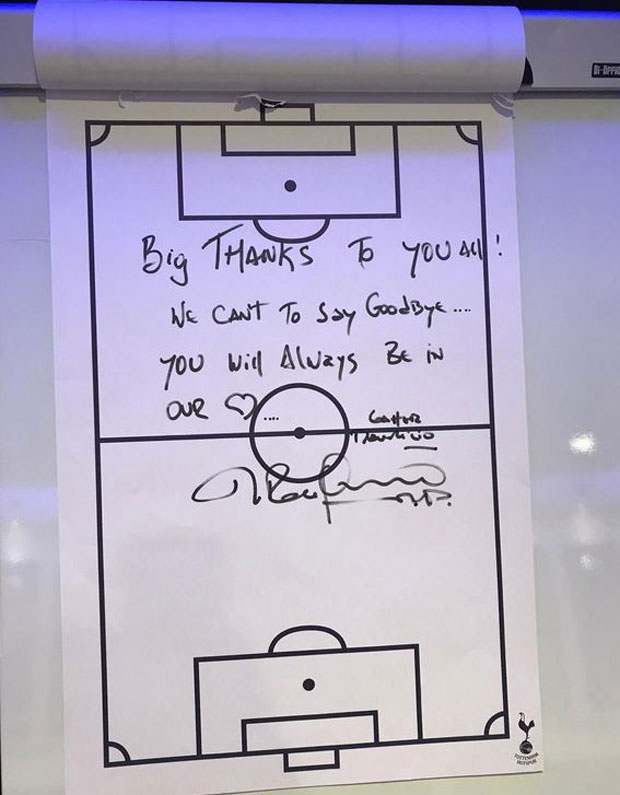 BI-OFFIC
Big THANKS To YOU All!
WE CANT To Say GoodBye....
YOU Will Always BE iN
OUR ♡....
TOTTENHAM
HOTSPUR